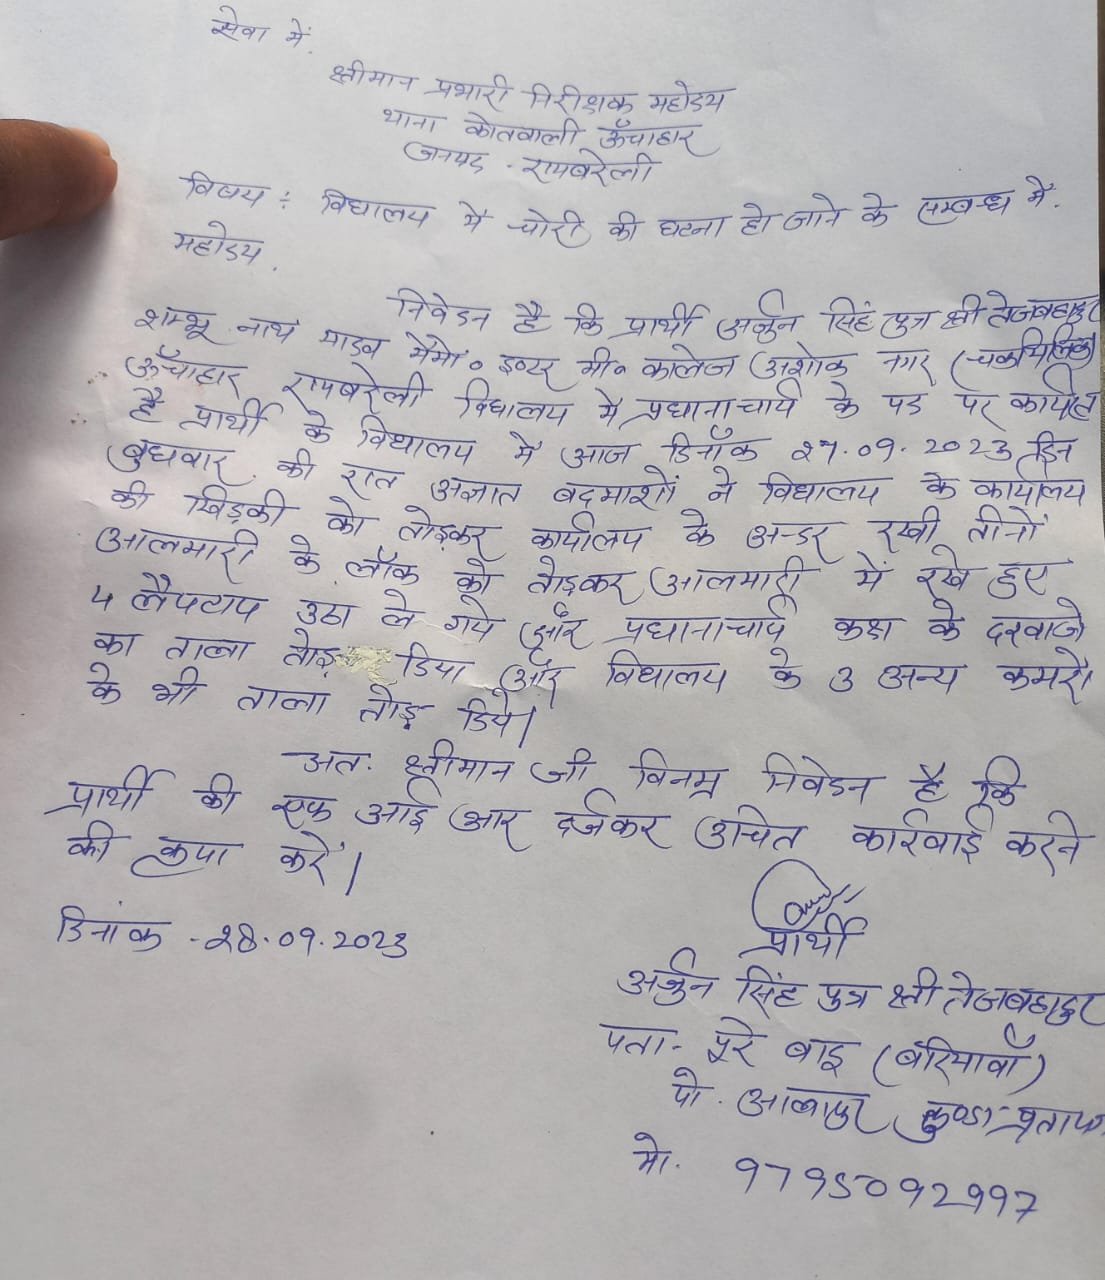 सेवा में.
श्रीमान प्रभारी निरीक्षक महोदय
थाना कोतवाली ऊँचाहार
जनपद - रायबरेली
विषय : विद्यालय में चोरी की घटना हो जाने के सम्बन्ध में.
महोदय.
निवेदन है कि प्रार्थी अर्जुन सिंह पुत्र श्री तेजबहादुर
शम्भू नाथ यादव मेमो० इण्टर मी० कालेज अशोक नगर
ऊँचाहार रायबरेली विद्यालय में प्रधानाचार्य के पद पर कार्यरत
है प्रार्थी के विद्यालय में आज दिनाँक 27.09.2023 दिन
बुधवार की रात अज्ञात बदमाशों ने विद्यालय के कार्यालय
की खिड़की को तोड़कर कार्यालय के अन्दर रखी तीनों
आलमारी के लॉक को तोड़कर आलमारी में रखे हुए
4 लैपटाप उठा ले गये और प्रधानाचार्य कक्ष के दरवाजे
का ताला तोड़ दिया और विद्यालय के 3 अन्य कमरों
के भी ताला तोड़ दिये।
अतः श्रीमान जी विनम्र निवेदन है कि
प्रार्थी की एफ आई आर दर्जकर उचित कार्रवाई करने
की कृपा करें।
दिनांक - 28.09.2023
प्रार्थी
अर्जुन सिंह पुत्र श्री तेजबहादुर
पता - पूरे बाइ (बरियावाँ)
पो. आलापुर कुण्डा-प्रताप
मो. 9795092997